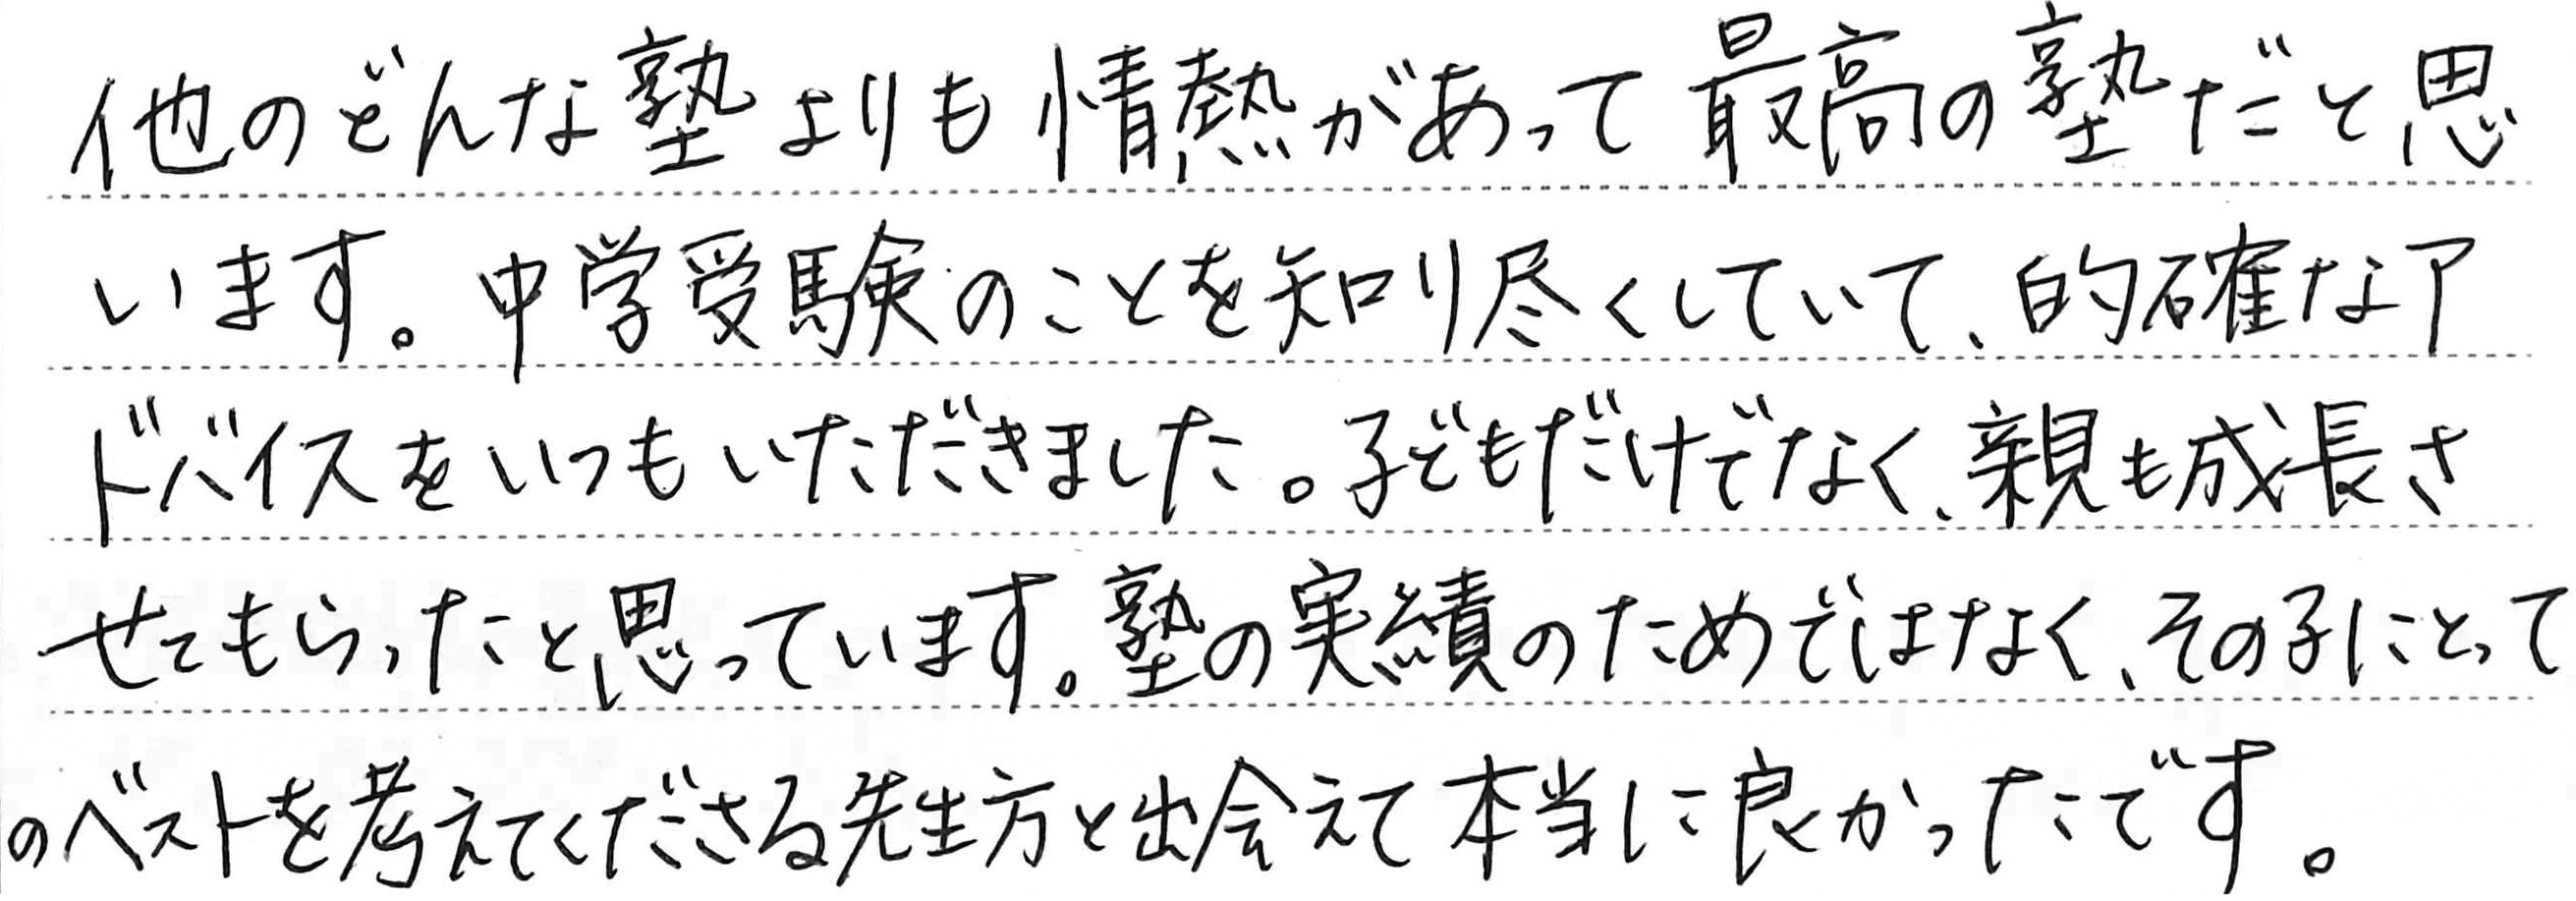 他のどんな塾よりも情熱があって最高の塾だと思
います。中学受験のことを知り尽くしていて、的確なア
ドバイスをいつもいただきました。子どもだけでなく、親も成長さ
せてもらったと思っています。塾の実績のためではなく、その子にとって
のベストを考えてくださる先生方と出会えて本当に良かったです。